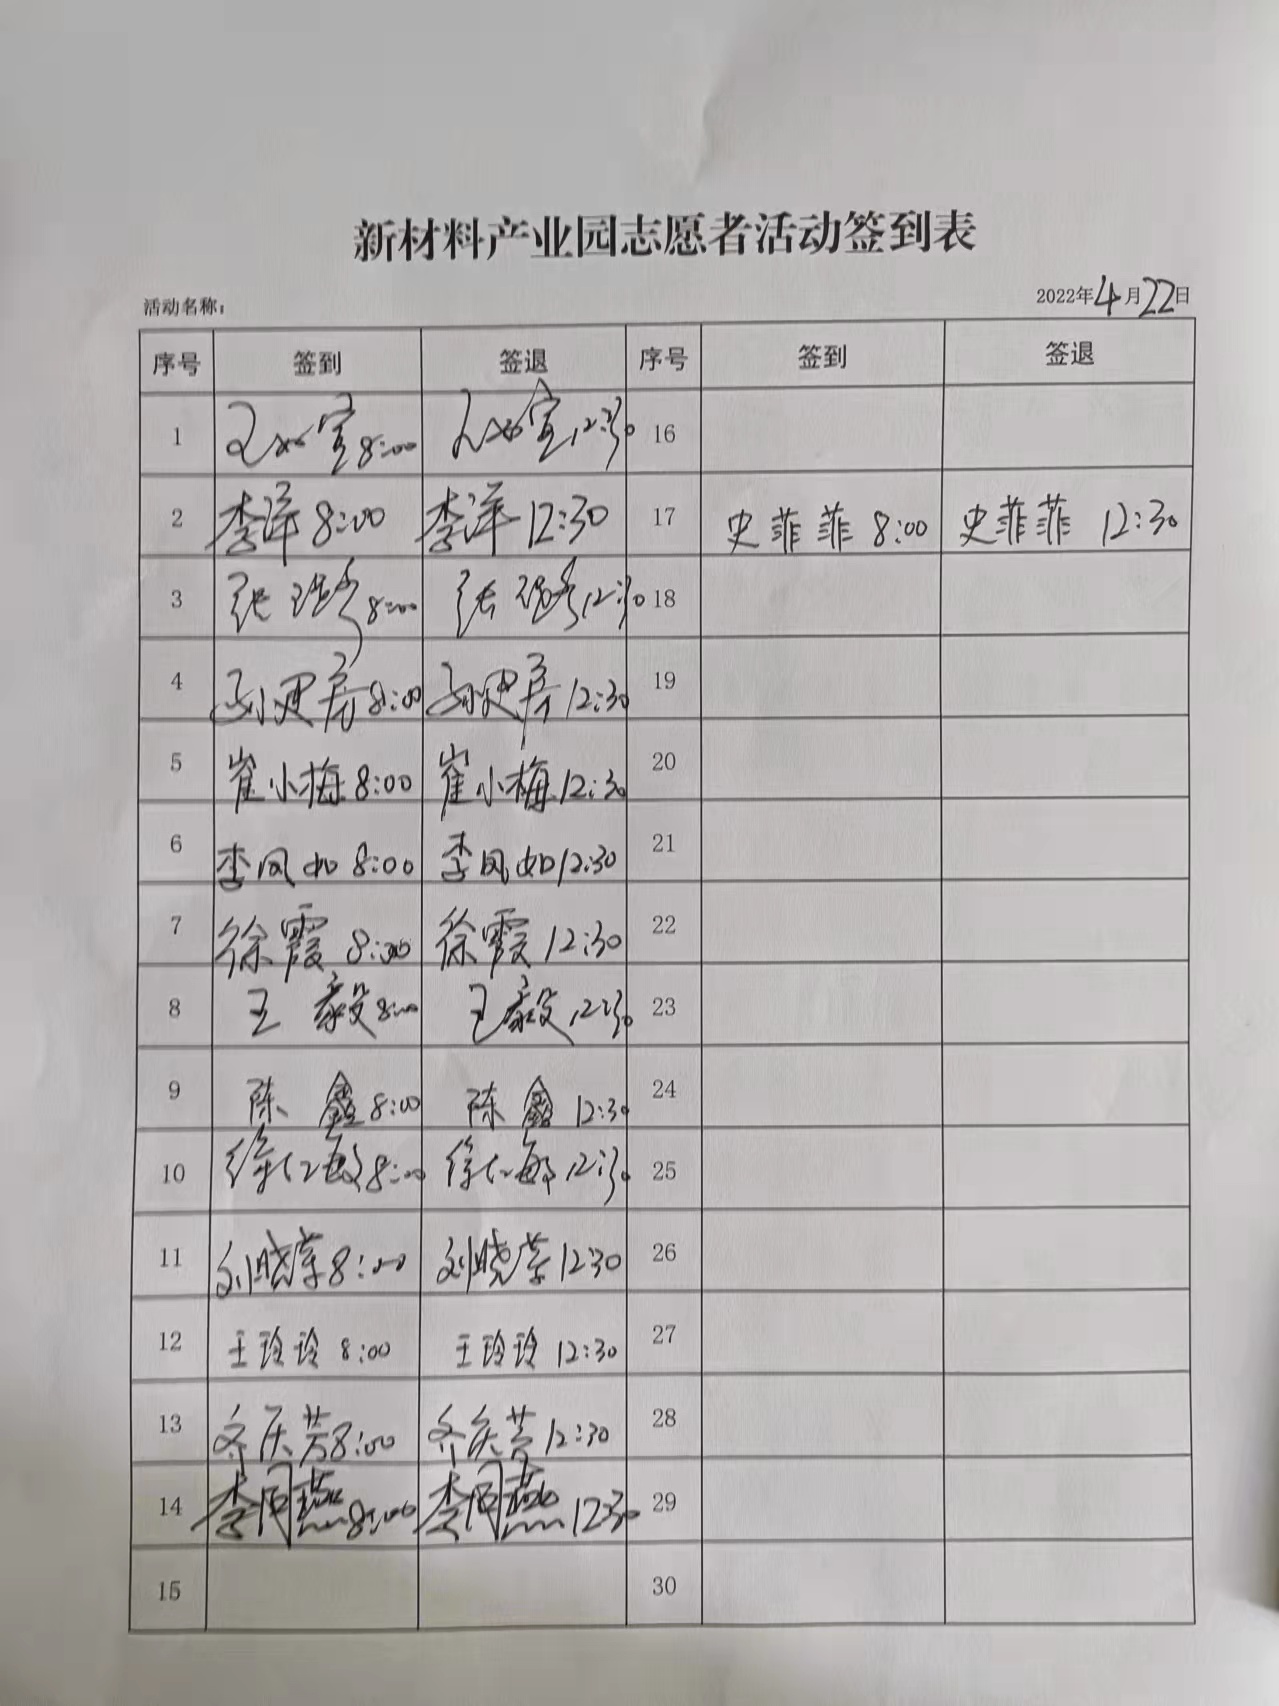 新材料产业园志愿者活动签到表
活动名称: 2022年4月22日
序号 签到 签退 序号 签到 签退
1 8:00 12:30 16
2 李洋 8:00 李洋 12:30 17 史菲菲 8:00 史菲菲 12:30
3 张 8:00 张 12:30 18
4 孙建房 8:00 孙建房 12:30 19
5 崔小梅 8:00 崔小梅 12:30 20
6 李凤如 8:00 李凤如 12:30 21
7 徐霞 8:00 徐霞 12:30 22
8 王毅 8:00 王毅 12:30 23
9 陈鑫 8:00 陈鑫 12:30 24
10 徐仁敏 8:00 徐仁敏 12:30 25
11 刘晓 8:00 刘晓 12:30 26
12 王玲玲 8:00 王玲玲 12:30 27
13 齐庆芳 8:00 齐庆芳 12:30 28
14 李同燕 8:00 李同燕 12:30 29
15 30